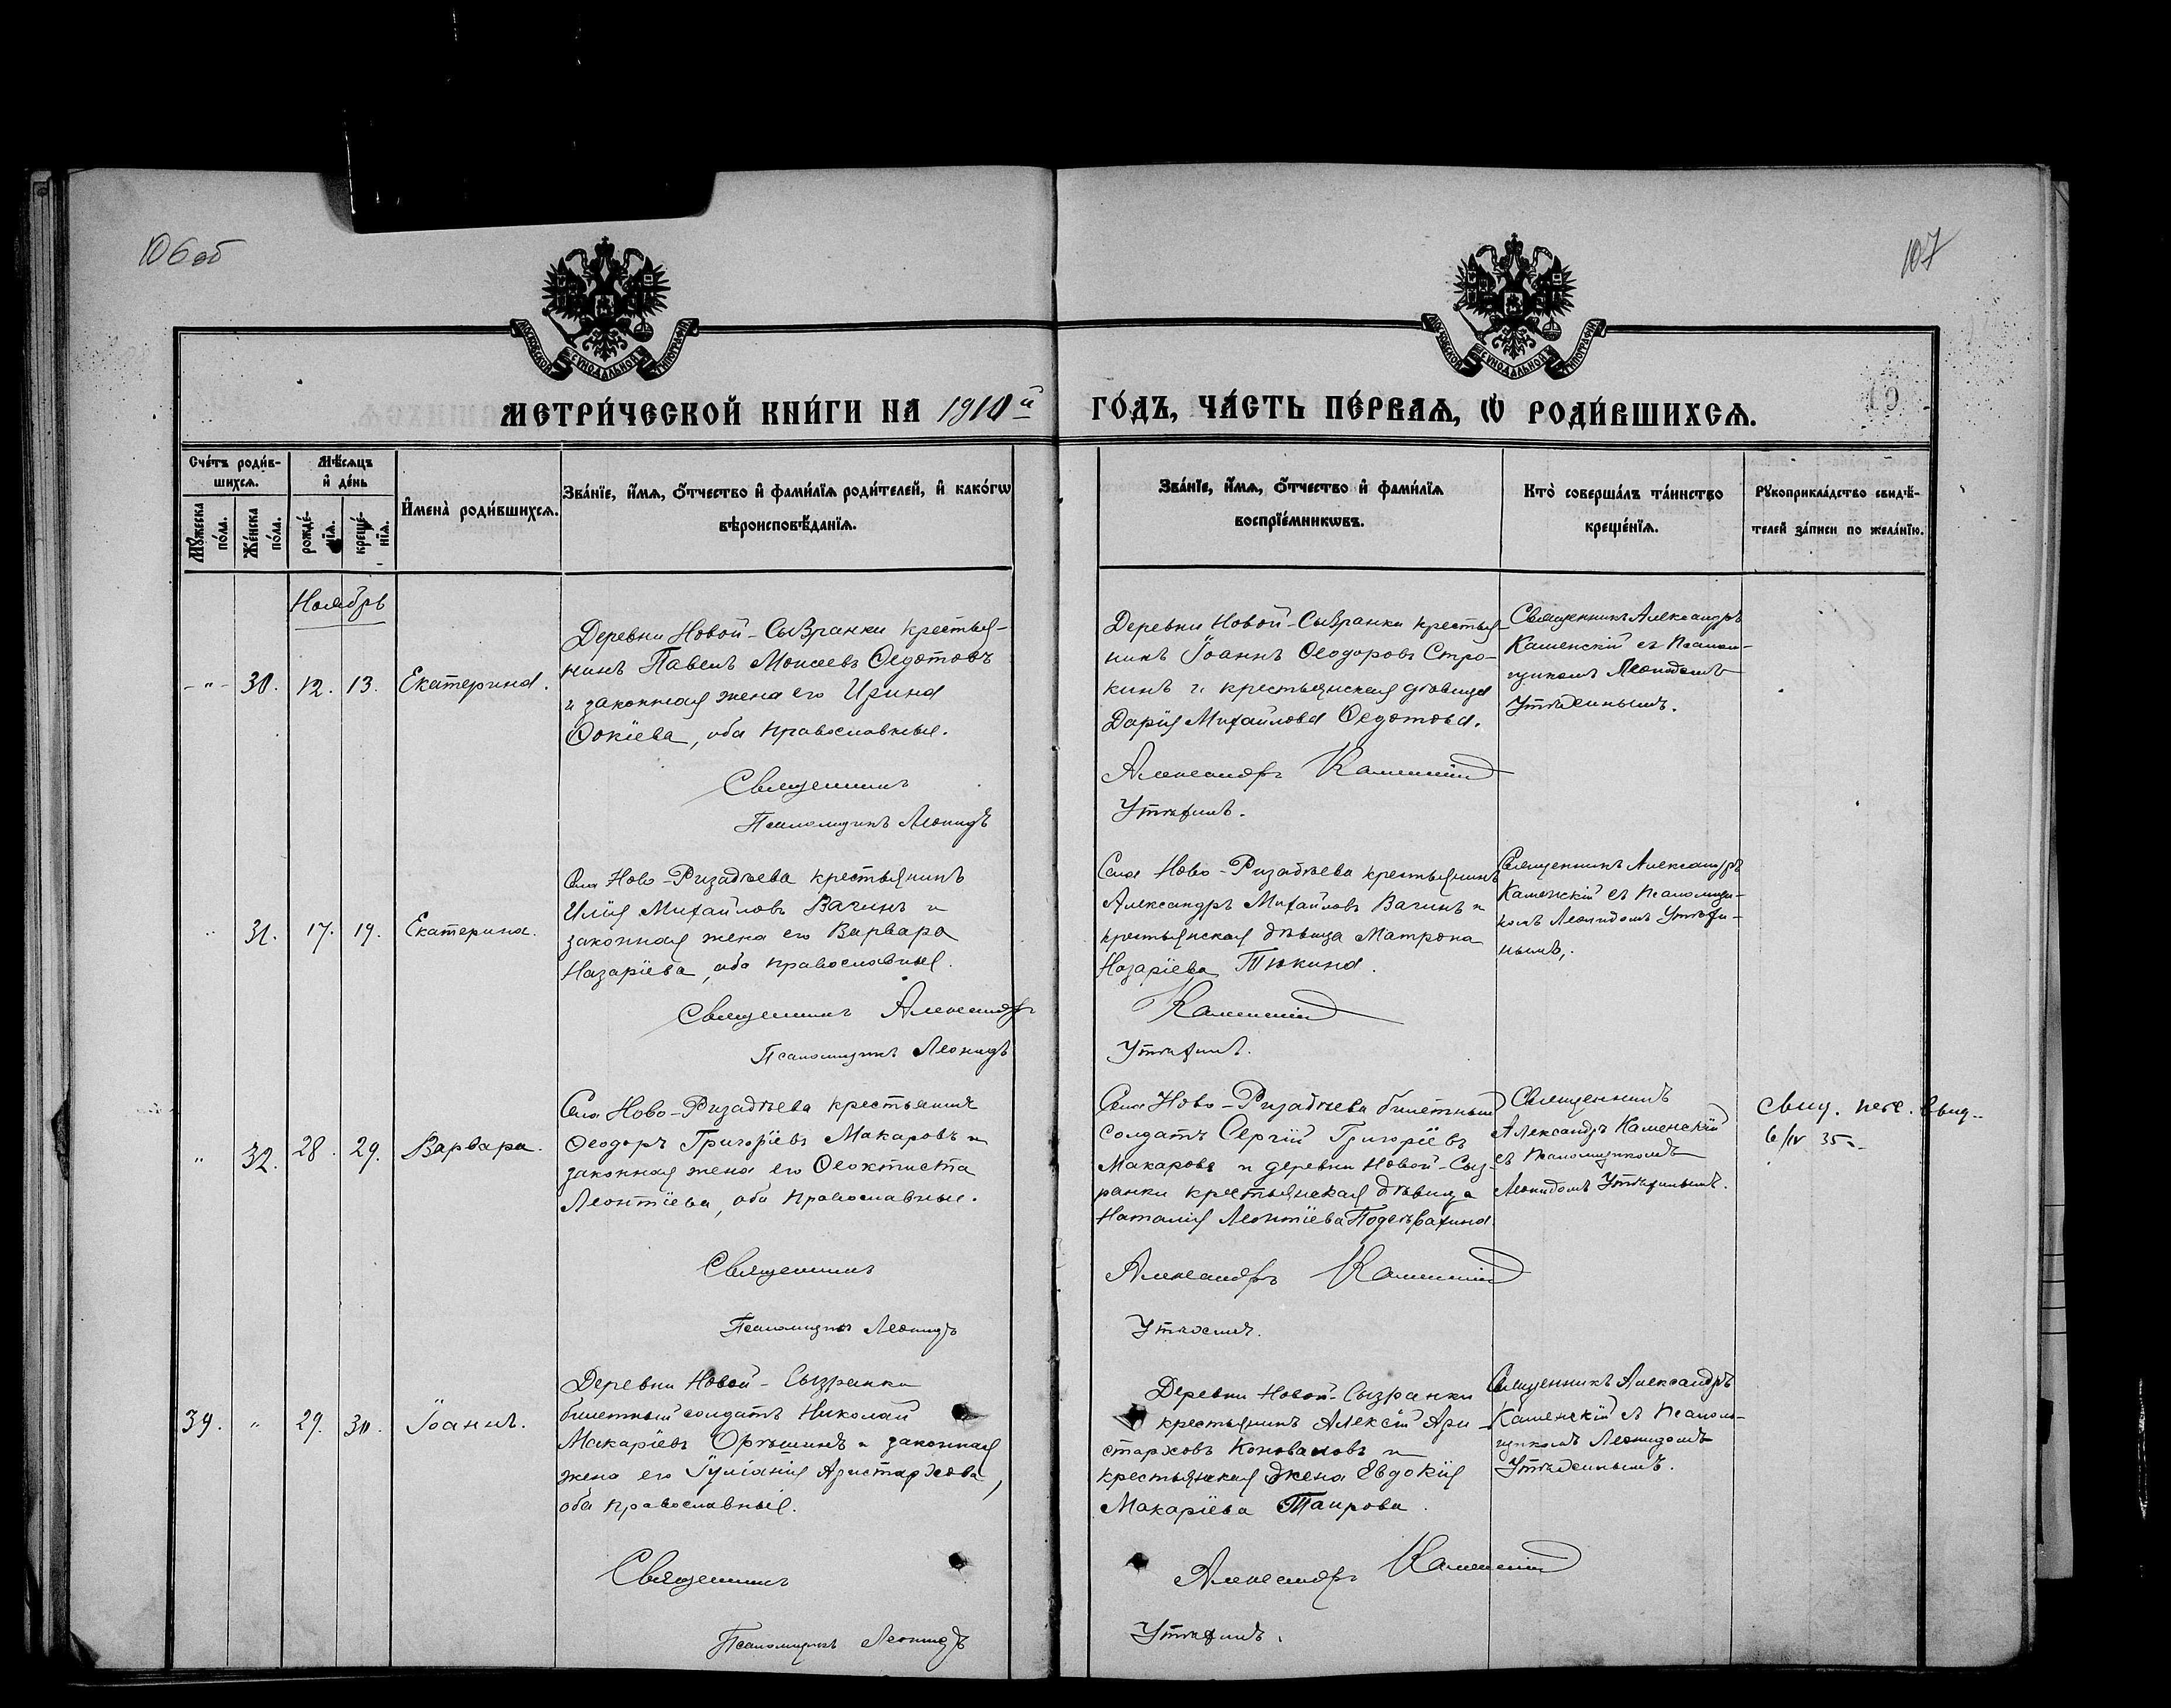 106об
107
МОСКОВСКОЙ СѴНОДАЛЬНОЙ ТИПОГРАФІИ
МОСКОВСКОЙ СѴНОДАЛЬНОЙ ТИПОГРАФІИ
МЕТРИ́ЧЕСКОЙ КНИ́ГИ НА 1910й ГО́ДЪ, ЧА́СТЬ ПЕ́РВАѦ, Ѡ РОДИ́ВШИХСѦ.
Сче́тъ роди́в-
шихсѧ.
Мѣ́сѧцъ
и҆ де́нь
Мꙋ́жеска
по́ла.
Же́нска
по́ла.
рожде́-
нїѧ.
креще́-
нїѧ.
И҆мена̀ роди́вшихсѧ.
Зва́нїе, и҆́мѧ, ѻ҆́тчество и҆ фами́лїѧ роди́телей, и҆ како́гѡ
вѣроисповѣ́данїѧ.
Зва́нїе, и҆́мѧ, ѻ҆́тчество и҆ фами́лїѧ
воспрїе́мникѡвъ.
Кто̀ соверша́лъ та́инство
креще́нїѧ.
Рꙋкоприкла́дство свидѣ́-
телей за́писи по жела́нїю.
Ноябрь
-"- 30. 12. 13. Екатерина.
Деревни Новой-Сызранки крестья-
нинъ Павелъ Моисеевъ Ѳедотовъ
и законная жена его Ирина
Ѳокіева, оба православные.
Священникъ
Псаломщикъ Леонидъ
Деревни Новой-Сызранки крестья-
нинъ Іоаннъ Ѳеодоровъ Стро-
кинъ и крестьянская дѣвица
Дарія Михайлова Ѳедотова.
Александръ Каменскій
Утѣхинъ.
Священникъ Александръ
Каменскій съ Псалом-
щикомъ Леонидомъ
Утѣхинымъ.
" 31. 17. 19. Екатерина.
Села Ново-Ризадѣева крестьянинъ
Илія Михайловъ Вагинъ и
законная жена его Варвара
Назаріева, оба православные.
Священникъ Александръ
Псаломщикъ Леонидъ
Села Ново-Ризадѣева крестьянинъ
Александръ Михайловъ Вагинъ и
крестьянская дѣвица Матрона
Назаріева Тюкина.
Каменскій
Утѣхинъ.
Священникъ Александръ
Каменскій съ Псаломщи-
комъ Леонидомъ Утѣхи-
нымъ.
" 32. 28. 29. Варвара.
Села Ново-Ризадѣева крестьянинъ
Ѳеодоръ Григоріевъ Макаровъ и
законная жена его Ѳеоктиста
Леонтіева, оба православные.
Священникъ
Псаломщикъ Леонидъ
Села Ново-Ризадѣева билетный
солдатъ Сергій Григоріевъ
Макаровъ и деревни Новой-Сыз-
ранки крестьянская дѣвица
Наталія Леонтіева
Александръ Каменскій
Утѣхинъ.
Священникъ
Александръ Каменскій
съ Псаломщикомъ
Леонидомъ Утѣхинымъ.
свид.
6/IV 35
39. " 29. 30. Іоаннъ.
Деревни Новой-Сызранки
билетный солдатъ Николай
Макаріевъ и законная
жена его Іуліанія Аристархова,
оба православные.
Священникъ
Псаломщикъ Леонидъ
Деревни Новой-Сызранки
крестьянинъ Алексій Ари-
старховъ Коноваловъ и
крестьянская жена Евдокія
Макаріева Таирова.
Александръ Каменскій
Утѣхинъ.
Священникъ Александръ
Каменскій съ Псалом-
щикомъ Леонидомъ
Утѣхинымъ.